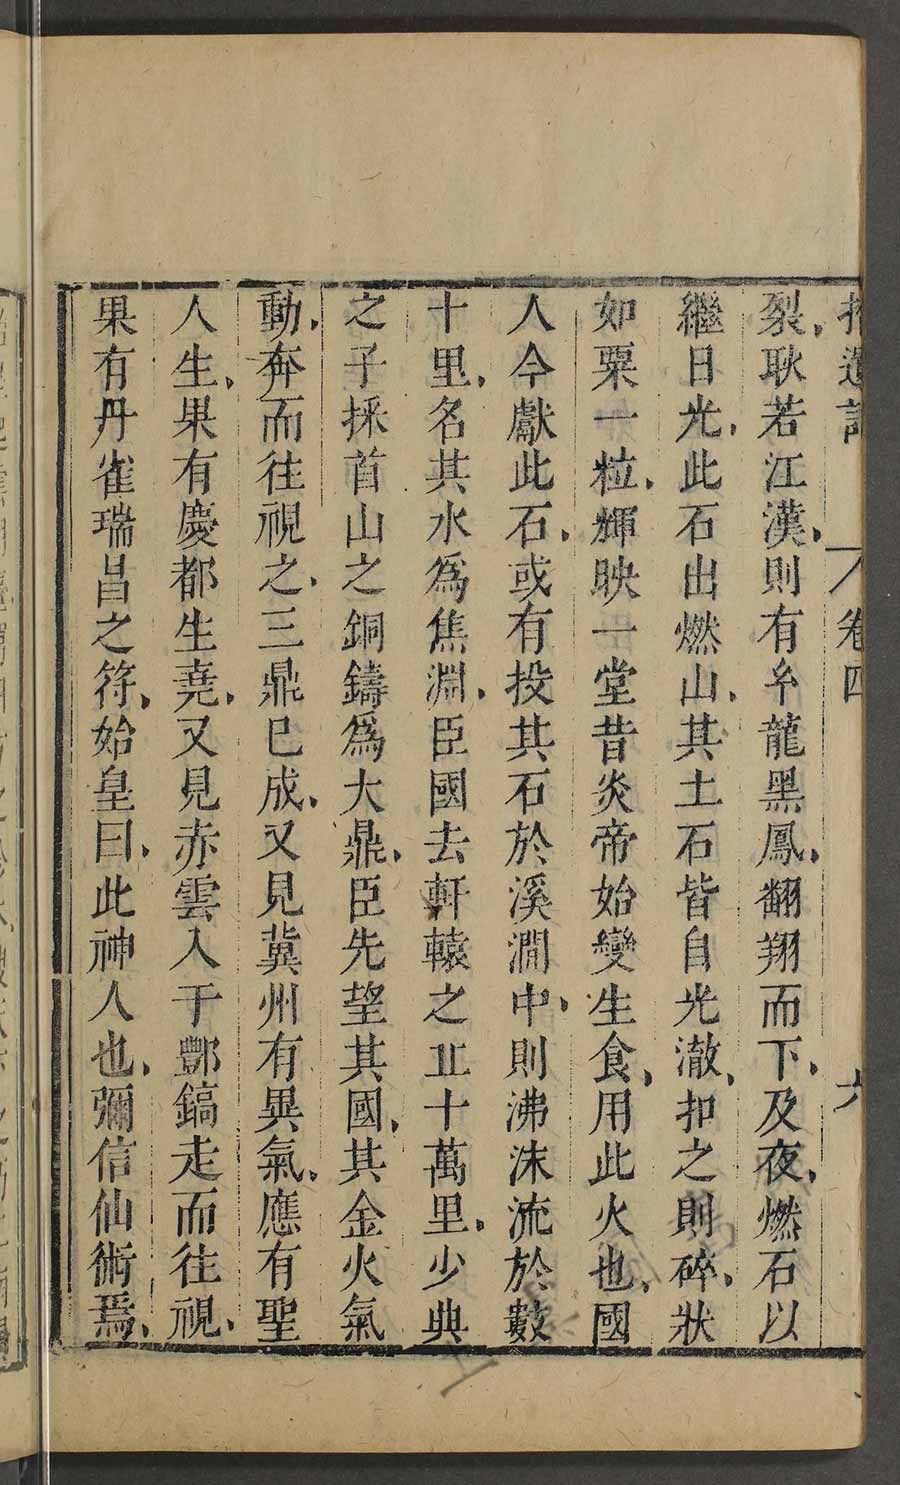 拾遺記 卷四 六
裂、耿若江漢、則有玄龍黑鳳、翻翔而下、及夜、燃石以
繼日光、此石出燃山、其土石皆自光澈、扣之則碎、狀
如粟一粒、輝映一堂昔炎帝始變生食、用此火也、國
人今獻此石、或有投其石於溪澗中、則沸沫流於數
十里、名其水爲焦淵、臣國去軒轅之丘十萬里、少典
之子採首山之銅鑄爲大鼎、臣先望其國、其金火氣
動、奔而往視之、三鼎已成、又見冀州有異氣、應有聖
人生、果有慶都生堯、又見赤雲入于酆鎬走而往視、
果有丹雀瑞昌之符、始皇曰、此神人也、彌信仙術焉、